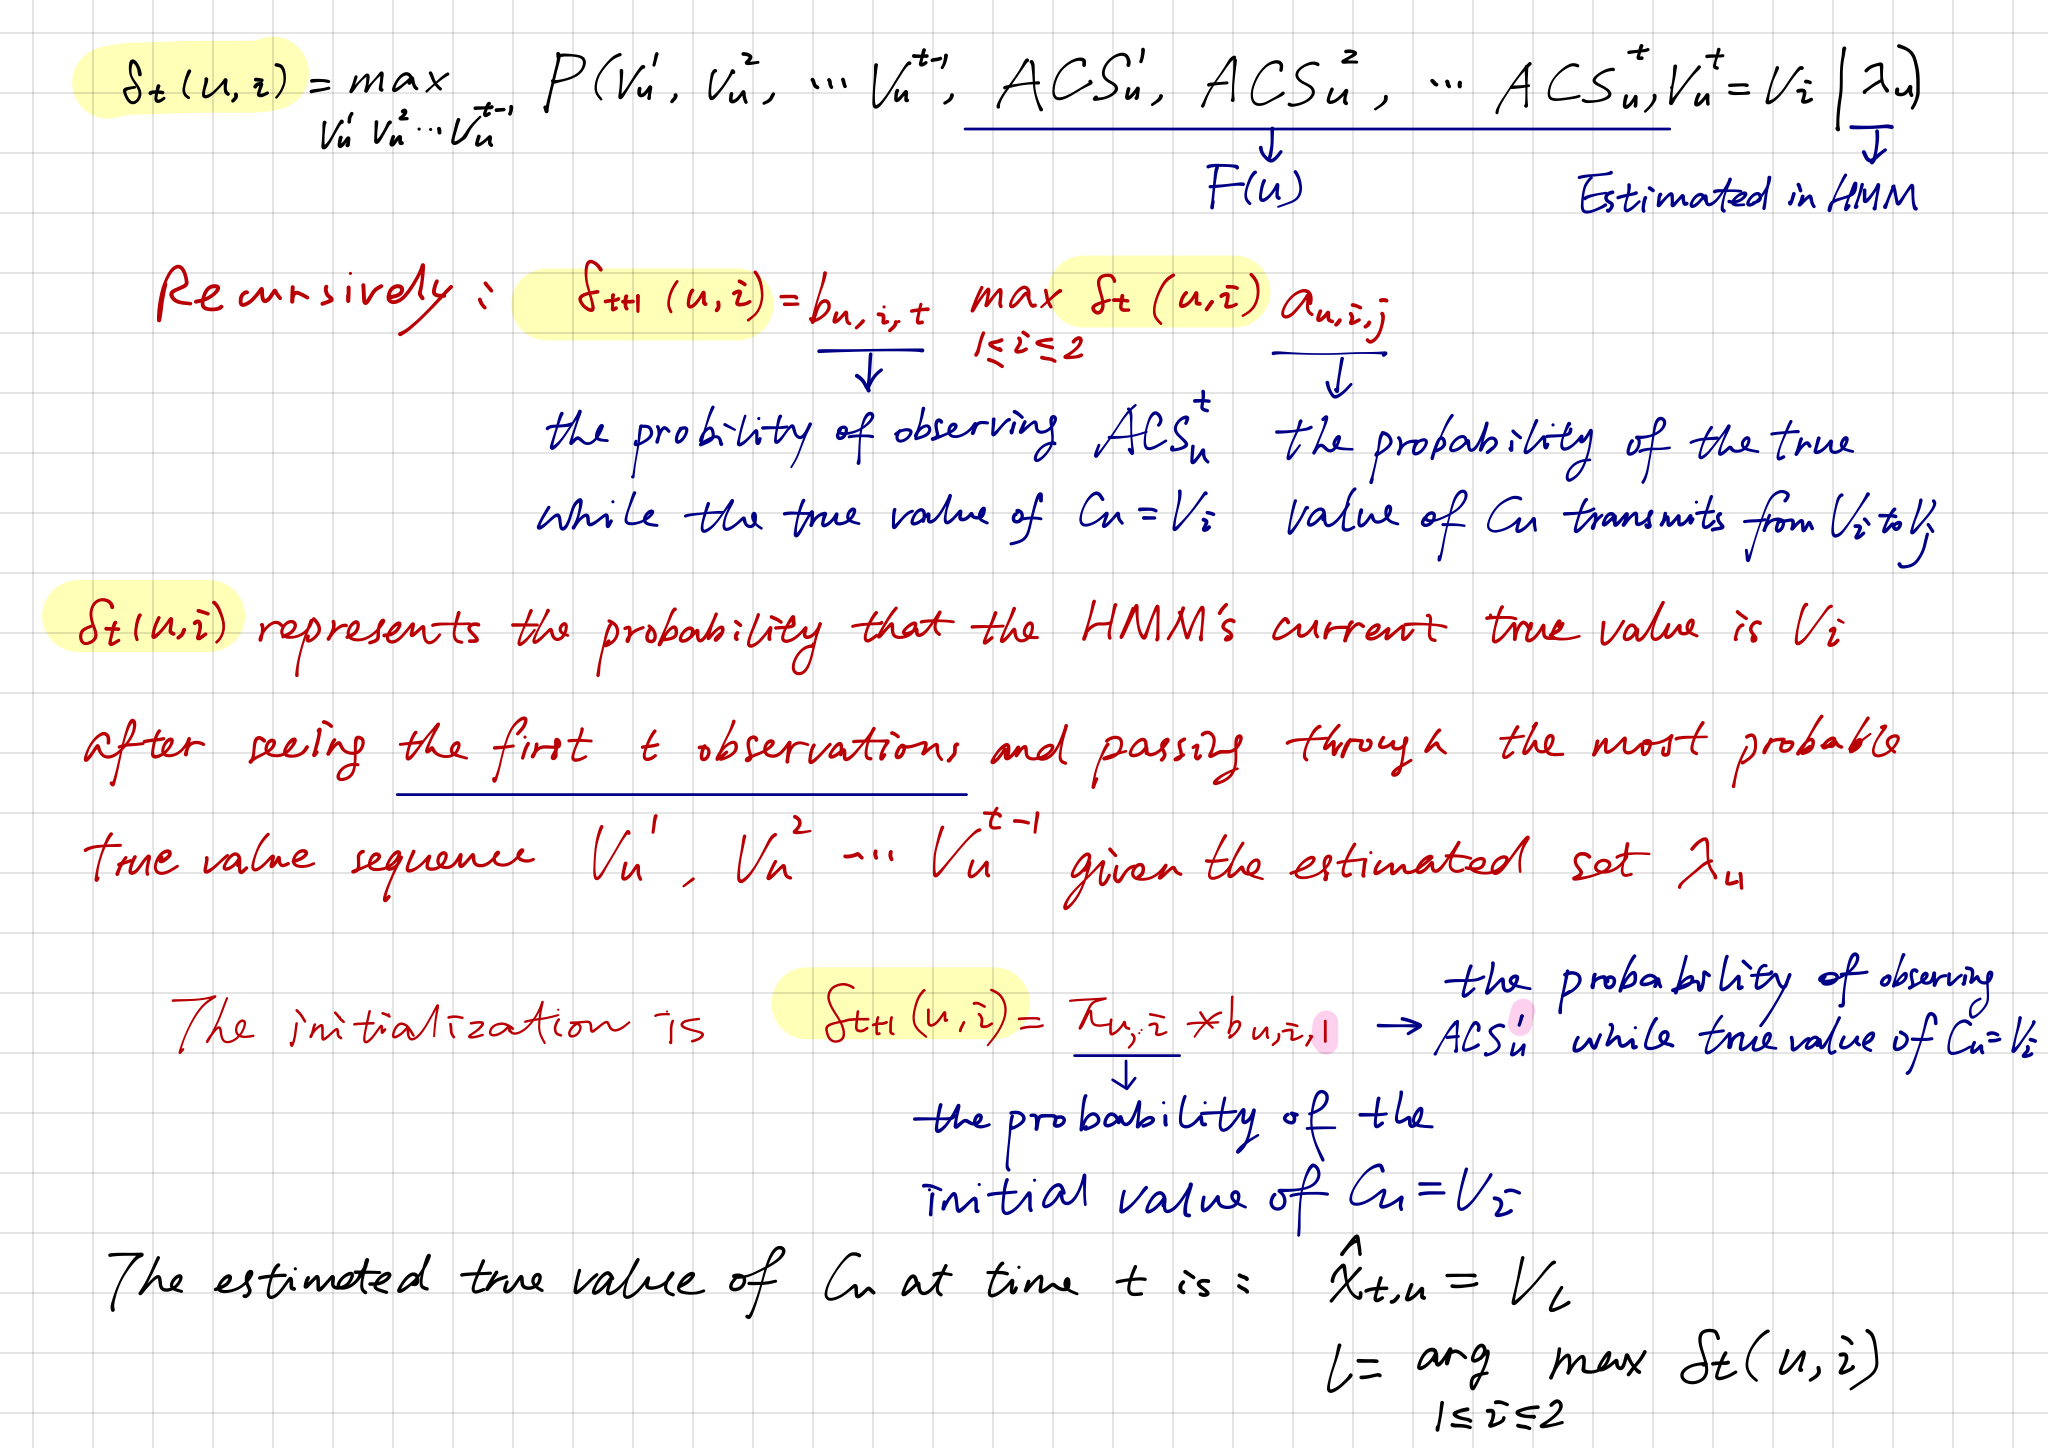 δt(u,i) = max P(Vu^1, Vu^2, ... Vu^t-1, ACSu^1, ACSu^2, ... ACSu^t, Vu^t = Vi | λu)
Vu^1 Vu^2 ... Vu^t-1
F(u) Estimated in HMM
Recursively : δt+1 (u,i) = bu,i,t max δt (u,i) au,i,j
1≤i≤2
the probility of observing ACSu^t the probability of the true
while the true value of Cu = Vi value of Cu transmits from Vi to Vj
δt(u,i) represents the probability that the HMM's current true value is Vi
after seeing the first t observations and passing through the most probable
true value sequence Vu^1, Vu^2 ... Vu^t-1 given the estimated set λu
The initialization is δt+1 (u,i) = πu,i * bu,i,1 → the probability of observing
ACSu^1 while true value of Cu = Vi
the probability of the
initial value of Cu = Vi
The estimated true value of Cu at time t is : x̂t,u = Vl
l = arg max δt(u,i)
1≤i≤2